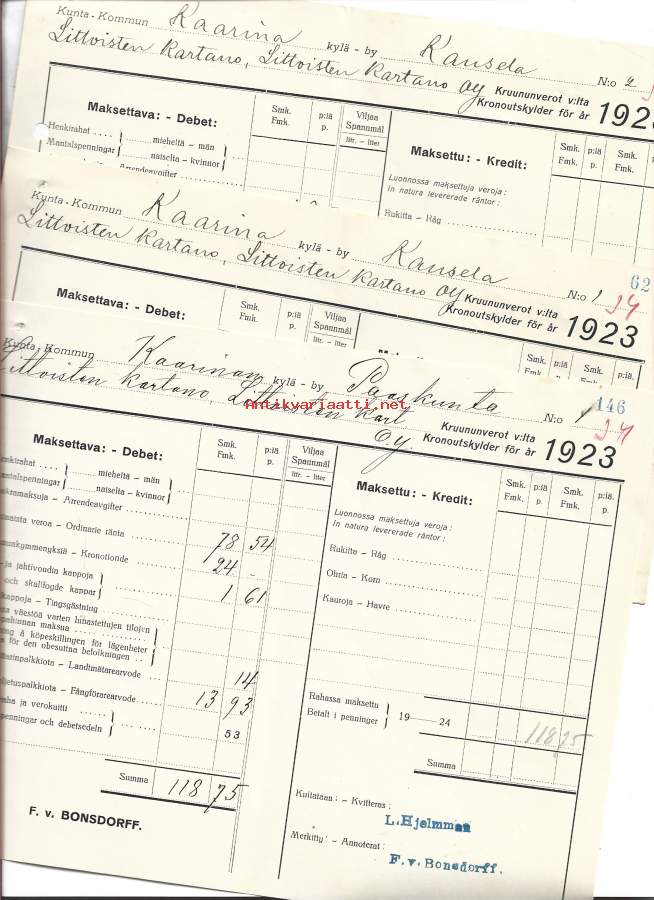 Kunta - Kommun Kaarina kylä - by Kausela N:o 2
Littoisten Kartano, Littoisten Kartano Oy
Kruununverot v:lta
Kronoutskylder för år 1923
Maksettava: - Debet:
Smk. Fmk.
p:iä p.
Viljaa Spannmål
litr. – liter
Maksettu: - Kredit:
Smk. Fmk.
p:iä p.
Smk. Fmk.
Henkirahat .... mieheltä – män
Mantalspenningar naiselta – kvinnor
Arrendeavgifter
Luonnossa maksettuja veroja:
In natura levererade räntor:
Rukiita – Råg
Kunta - Kommun Kaarina kylä - by Kausela N:o 1
62
Littoisten Kartano, Littoisten Kartano Oy
Kruununverot v:lta
Kronoutskylder för år 1923
Maksettava: - Debet:
Smk. Fmk.
p:iä p.
Viljaa Spannmål
litr. – liter
Smk. Fmk.
p:iä
Smk.
p:iä.
Kunta - Kommun Kaarinan kylä - by N:o 1
146
Littoisten Kartano, Littoisten Kart Oy.
Antikvariaatti.net
Kruununverot v:lta
Kronoutskylder för år 1923
Maksettava: - Debet:
Smk. Fmk.
p:iä p.
Viljaa Spannmål
litr. – liter
Maksettu: - Kredit:
Smk. Fmk.
p:iä p.
Smk. Fmk.
p:iä. p.
Henkirahat .... mieheltä – män
Mantalspenningar naiselta – kvinnor
– Arrendeavgifter
veroa – Ordinarie ränta 78 54
– Kronotionde 24 –
ja jahtivoudin kappoja
och skallfogde kappar 1 61
kappoja – Tingsgästning
väestöä varten lunastettujen tilojen
maksua
å köpeskillingen för lägenheter
för den obesuttna befolkningen
– Landtmätarearvode 14
– Fångförarearvode 13 93
ja verokuitti
penningar och debetsedeln 53
Summa 118 75
F. v. BONSDORFF.
Luonnossa maksettuja veroja:
In natura levererade räntor:
Rukiita – Råg
Ohria – Korn
Kauroja – Havre
Rahassa maksettu
Betalt i penninger 19 — 24 118,75
Summa
Kuitataan: – Kvitteras:
L. Hjelmman
Merkitty: – Annoterat:
F. v. Bonsdorff.